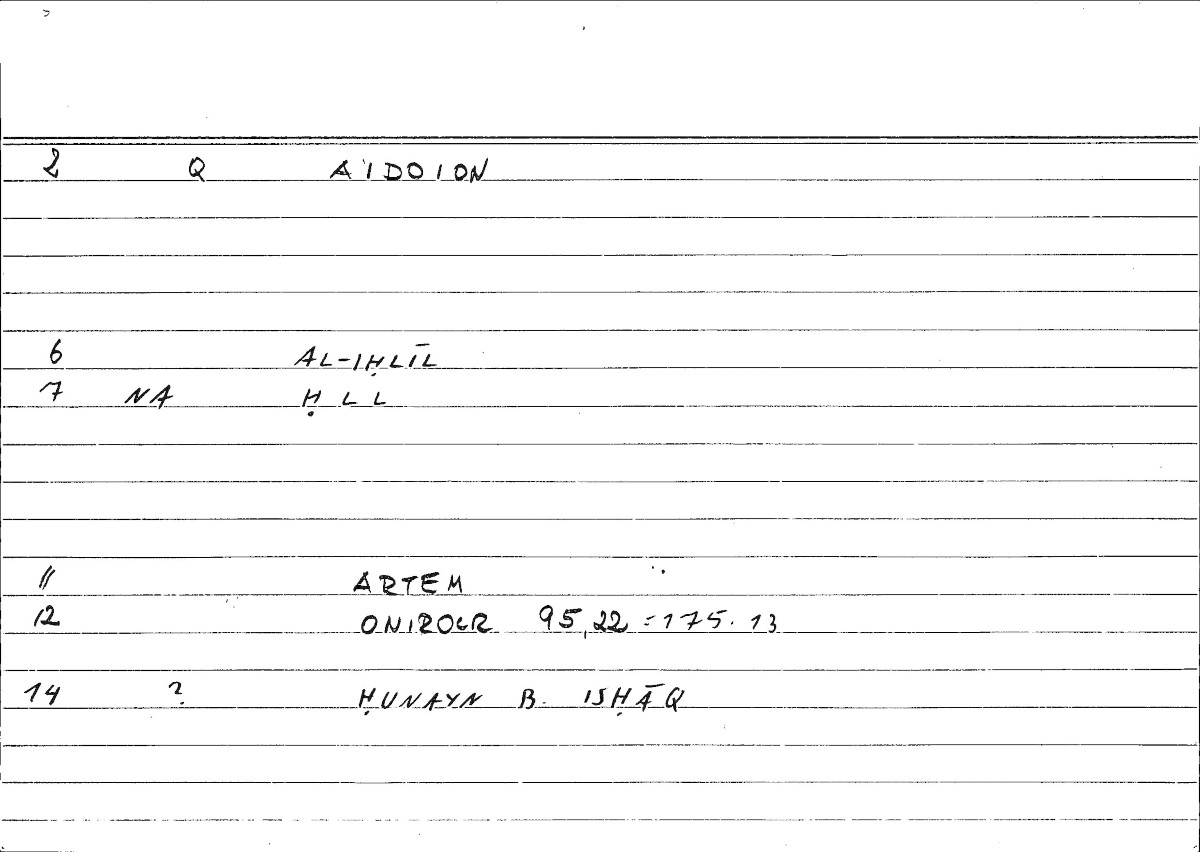 2 Q A'IDOION
6 AL-IḤLĪL
7 NA ḤLL
11 ARTEM
12 ONIROCR 95,22 = 175.13
14 ? ḤUNAYN B. ISḤĀQ